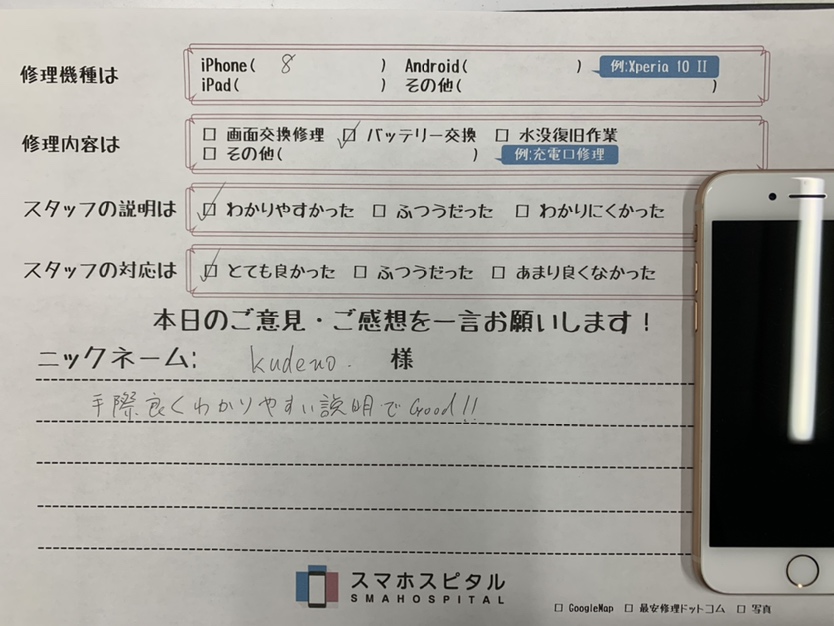 修理機種は
iPhone( 8 ) Android( ) 例:Xperia 10 II
iPad( ) その他( )
修理内容は
☐ 画面交換修理 ☑ バッテリー交換 ☐ 水没復旧作業
☐ その他( ) 例:充電口修理
スタッフの説明は ☑ わかりやすかった ☐ ふつうだった ☐ わかりにくかった
スタッフの対応は ☑ とても良かった ☐ ふつうだった ☐ あまり良くなかった
本日のご意見・ご感想を一言お願いします!
ニックネーム: kudeno. 様
手際良くわかりやすい説明でGood!!
スマホスピタル
SMAHOSPITAL
☐ GoogleMap ☐ 最安修理ドットコム ☐ 写真